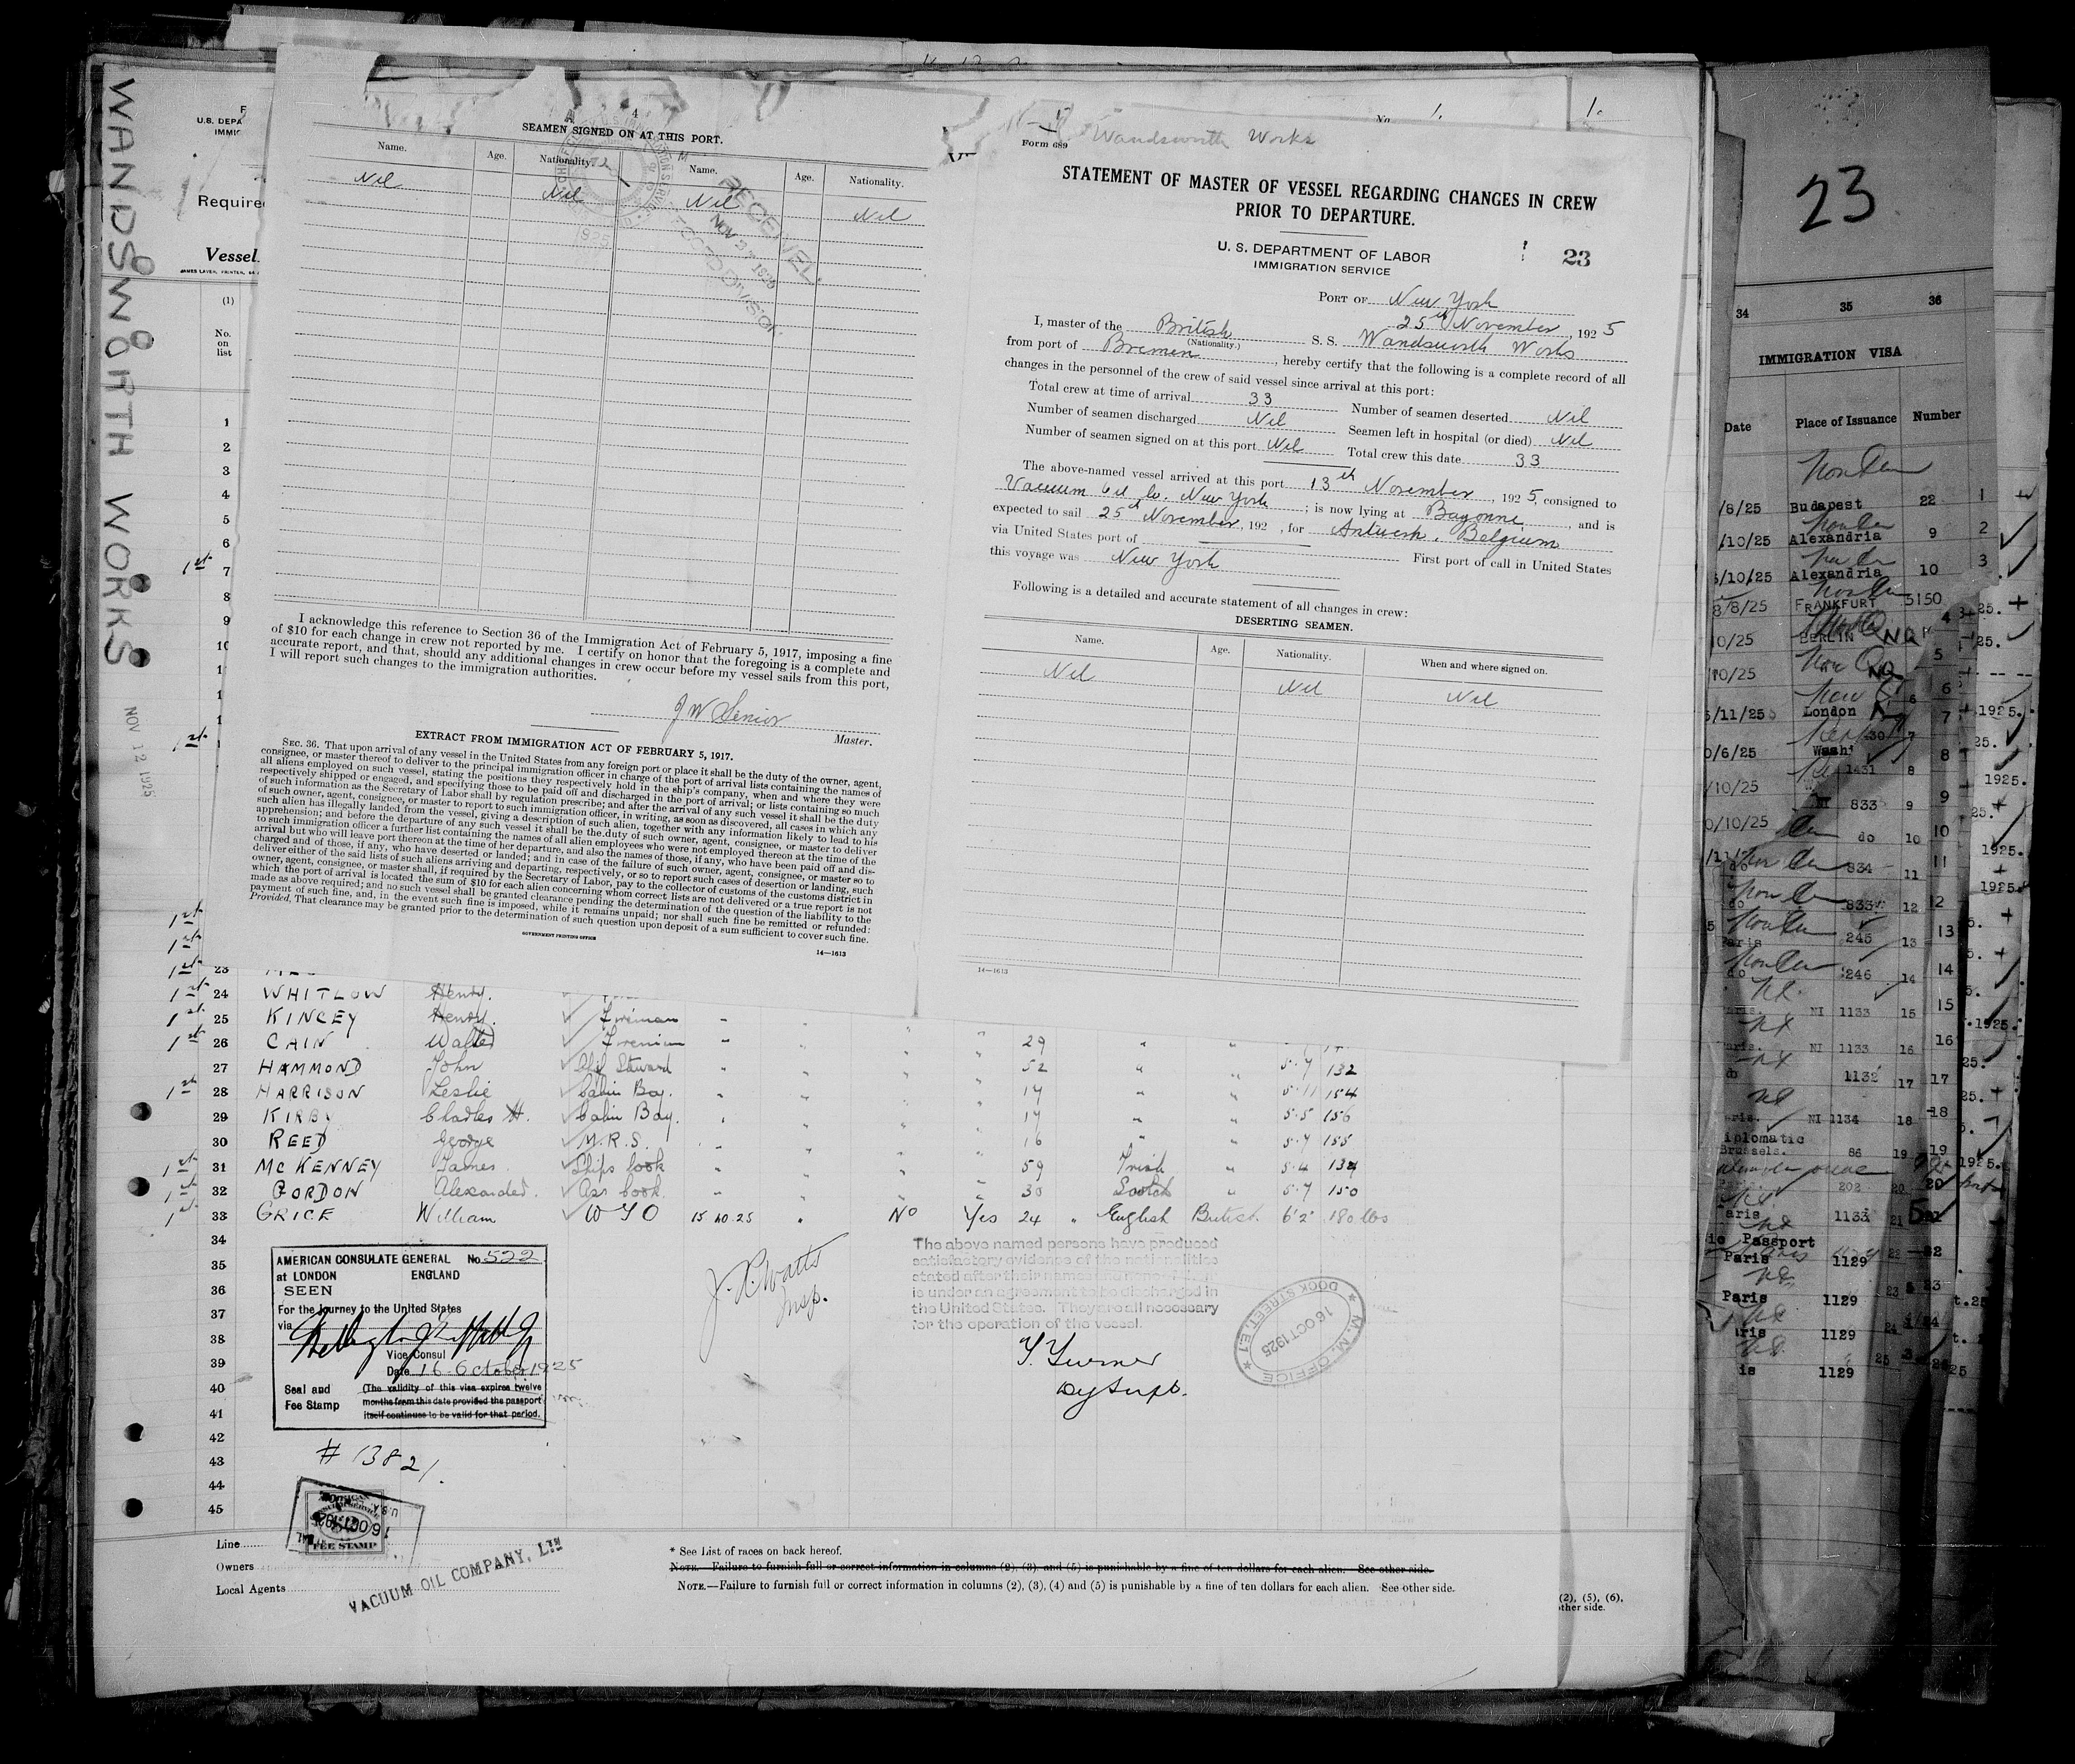 WANDSWORTH WORKS
NOV 12 1925
U.S. DEPA
IMMIC
Required
Vessel
(1)
No.
on
list
4
SEAMEN SIGNED ON AT THIS PORT.
Name. Age. Nationality. Name. Age. Nationality.
Nil Nil Nil Nil
RECEIVED
I acknowledge this reference to Section 36 of the Immigration Act of February 5, 1917, imposing a fine
of $10 for each change in crew not reported by me. I certify on honor that the foregoing is a complete and
accurate report, and that, should any additional changes in crew occur before my vessel sails from this port,
I will report such changes to the immigration authorities.
J W Senior
Master.
EXTRACT FROM IMMIGRATION ACT OF FEBRUARY 5, 1917.
SEC. 36. That upon arrival of any vessel in the United States from any foreign port or place it shall be the duty of the owner, agent,
consignee, or master thereof to deliver to the principal immigration officer in charge of the port of arrival lists containing the names of
all aliens employed on such vessel, stating the positions they respectively hold in the ship's company, when and where they were
respectively shipped or engaged, and specifying those to be paid off and discharged in the port of arrival; or lists containing so much
of such information as the Secretary of Labor shall by regulation prescribe; and after the arrival of any such vessel it shall be the duty
of such owner, agent, consignee, or master to report to such immigration officer, in writing, as soon as discovered, all cases in which any
such alien has illegally landed from the vessel, giving a description of such alien, together with any information likely to lead to his
apprehension; and before the departure of any such vessel it shall be the duty of such owner, agent, consignee, or master to deliver
to such immigration officer a further list containing the names of all alien employees who were not employed thereon at the time of the
arrival but who will leave port thereon at the time of her departure, and also the names of those, if any, who have been paid off and dis-
charged and of those, if any, who have deserted or landed; and in case of the failure of such owner, agent, consignee, or master so to
deliver either of the said lists of such aliens arriving and departing, respectively, or so to report such cases of desertion or landing, such
owner, agent, consignee, or master shall, if required by the Secretary of Labor, pay to the collector of customs of the customs district in
which the port of arrival is located the sum of $10 for each alien concerning whom correct lists are not delivered or a true report is not
made as above required; and no such vessel shall be granted clearance pending the determination of the question of the liability to the
payment of such fine, and, in the event such fine is imposed, while it remains unpaid; nor shall such fine be remitted or refunded:
Provided, That clearance may be granted prior to the determination of such question upon deposit of a sum sufficient to cover such fine.
GOVERNMENT PRINTING OFFICE
14—1613
Wandsworth Works
Form 689
STATEMENT OF MASTER OF VESSEL REGARDING CHANGES IN CREW
PRIOR TO DEPARTURE.
U. S. DEPARTMENT OF LABOR
IMMIGRATION SERVICE
23
PORT OF New York
25th November, 1925
I, master of the British S. S. Wandsworth Works
(Nationality.)
from port of Bremen, hereby certify that the following is a complete record of all
changes in the personnel of the crew of said vessel since arrival at this port:
Total crew at time of arrival 33 Number of seamen deserted Nil
Number of seamen discharged Nil Seamen left in hospital (or died) Nil
Number of seamen signed on at this port Nil Total crew this date 33
The above-named vessel arrived at this port 13th November, 1925, consigned to
Vacuum Oil Co. New York; is now lying at Bayonne, and is
expected to sail 25th November, 192 , for Antwerh. Belgium
via United States port of
First port of call in United States
this voyage was New York
Following is a detailed and accurate statement of all changes in crew:
DESERTING SEAMEN.
Name. Age. Nationality. When and where signed on.
Nil Nil Nil
14—1613
1st 24 WHITLOW Henry.
1st 25 KINCEY Henry. Fireman
1st 26 CAIN Walter Fireman 29
27 HAMMOND John Chf Steward 52 5·7 132
1st 28 HARRISON Leslie Cabin Boy. 17 5·11 154
29 KIRBY Charles H. Cabin Boy. 17 5·5 156
30 REED George M.R.S. 16 5·7 155
1st 31 McKENNEY James Ships Cook 59 Irish 5·4 134
1st 32 GORDON Alexander. Ass Cook 30 Scotch 5·7 150
1st 33 GRICE William W T O 15 10.25 No Yes 24 English British 6'2" 180 lbs
34
35
36
37
38
39
40
41
42
43
44
45
AMERICAN CONSULATE GENERAL No. 522
at LONDON ENGLAND
SEEN
For the Journey to the United States
via
Vice Consul
Date 16 October 1925
Seal and
Fee Stamp
(The validity of this visa expires twelve
months from this date provided the passport
itself continues to be valid for that period.
# 13821.
FEE STAMP
J. R. Watts
Insp.
The above named persons have produced
satisfactory evidence of the nationalities
stated after their names and none
is under an agreement to be discharged in
the United States. They are all necessary
for the operation of the vessel.
T. Turner
Dy Supt.
M. M. OFFICE
DOCK STREET. E.1
16 OCT 1925
Line
Owners
Local Agents
VACUUM OIL COMPANY, LTD
* See List of races on back hereof.
NOTE.—Failure to furnish full or correct information in columns (2), (3), and (5) is punishable by a fine of ten dollars for each alien. See other side.
NOTE.—Failure to furnish full or correct information in columns (2), (3), (4) and (5) is punishable by a fine of ten dollars for each alien. See other side.
(2), (5), (6),
other side.
23
34 35 36
IMMIGRATION VISA
Date Place of Issuance Number
/8/25 Budapest 22 1
/10/25 Alexandria 9 2
/10/25 Alexandria 10 3
8/8/25 FRANKFURT 5150
0/25 BERLIN 4
/10/25 5
/11/25 London
0/6/25 Wash
/10/25 1431 8
833 9
0/10/25 do 10
do 834 11
do 833 12
Paris 245 13
do 246 14
Paris. NI 1133 15
Paris. NI 1133 16
do 1132 17
Paris. NI 1134 18
Diplomatic
Brussels. 86 19
Paris. 202 20
Paris 1133 21
Passport
Paris 1129 22
Paris 1129 23
Paris 1129 24
is 1129 25